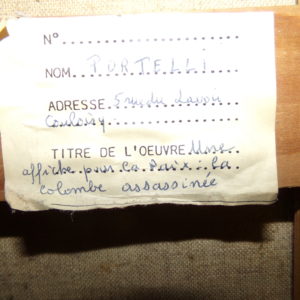 N° ....................
NOM PORTELLI
ADRESSE 5 rue du Lavoir
Couloisy
TITRE DE L'OEUVRE Une
affiche pour la Paix : la
colombe assassinée